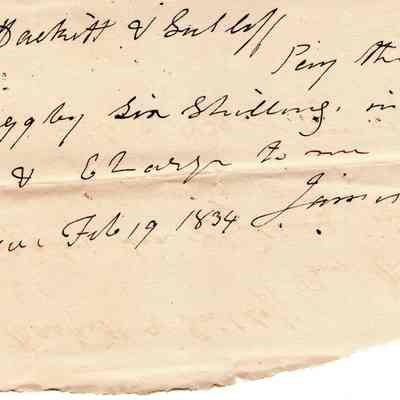 Hackitt & Sutliff
Pay th
ggby Six Shillings in
& Charge to me
Feb 19 1834 James